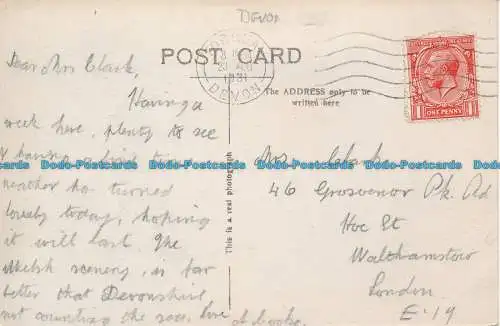 DEVON
POST CARD
1931
DEVON
POSTAGE REVENUE
ONE PENNY
The ADDRESS only to be
written here
This is a real photograph
Dear Mrs Clark,
Having a
week here, plenty to see
& having a
weather has turned
lovely today, hoping
it will last. The
Welsh scenery, is far
better than Devonshire
not counting the sea. Love
Mrs Clark
46 Grosvenor Pk. Rd
Hoe St
Walthamstow
London.
E-17
Dodo-Postcards Dodo-Postcards Dodo-Postcards Dodo-Postcards Dodo-Postcards